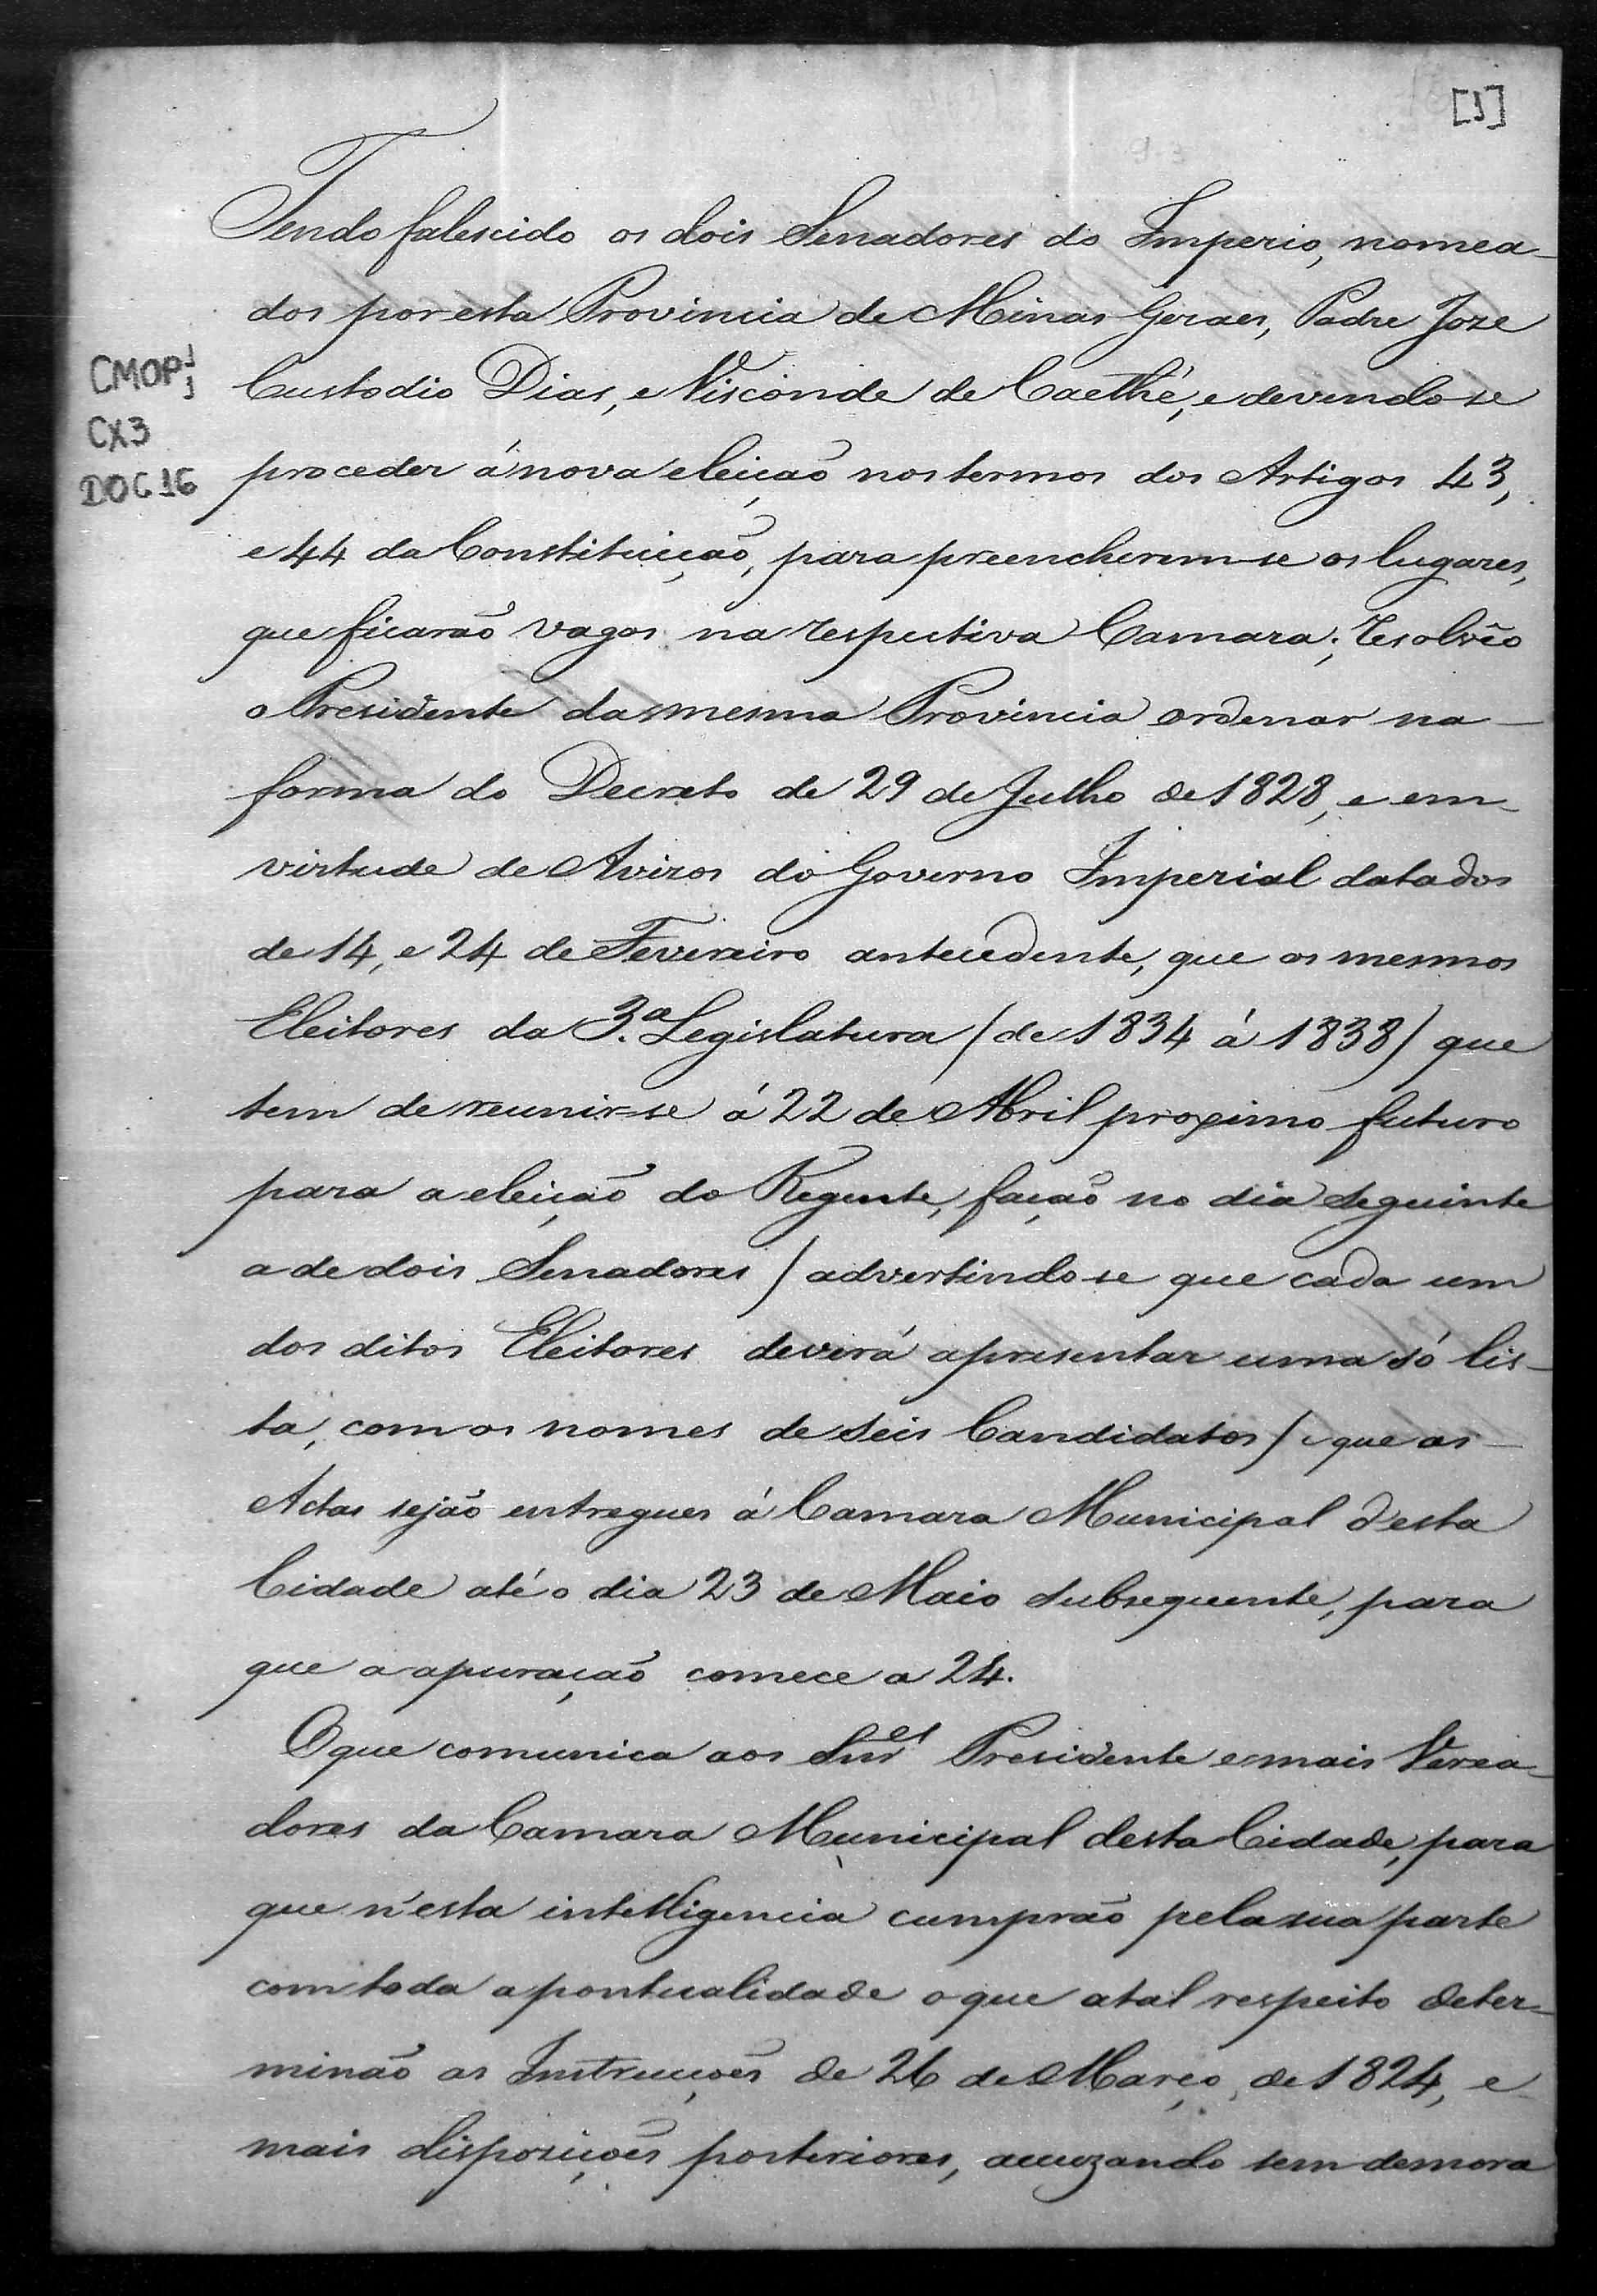 [1]
Tendo falescido os dois Senadores do Imperio, nomea-
dos por esta Provincia de Minas Geraes, Padre Joze
CMOP 1/3
Custodio Dias, e Visconde de Caethé, e devendo-se
CX3
proceder á nova eleição nos termos dos Artigos 43,
DOC 16
e 44 da Constituição, para preencherem-se os lugares,
que ficarão vagos na respectiva Camara; resolvêo
o Presidente da mesma Provincia ordenar na
forma do Decreto de 29 de Julho de 1828, e em
virtude de Avizos do Governo Imperial datados
de 14, e 24 de Fevereiro antecedente, que os mesmos
Eleitores da 3.ª Legislatura (de 1834 á 1838) que
tem de reunir-se á 22 de Abril proximo futuro
para a eleição do Regente, fação no dia seguinte
a de dois Senadores (advertindo-se que cada um
dos ditos Eleitores deverá apresentar uma só lis-
ta, com os nomes de seis Candidatos) e que as
Actas sejão entregues á Camara Municipal d'esta
Cidade até o dia 23 de Maio subsequente, para
que a apuração comece a 24.
O que comunica aos Snr.es Presidente e mais Verea-
dores da Camara Municipal desta Cidade, para
que n'esta intelligencia cumprão pela sua parte
com toda a pontualidade o que a tal respeito deter-
minão as Instrucções de 26 de Março, de 1824, e
mais disposições posteriores, accuzando sem demora